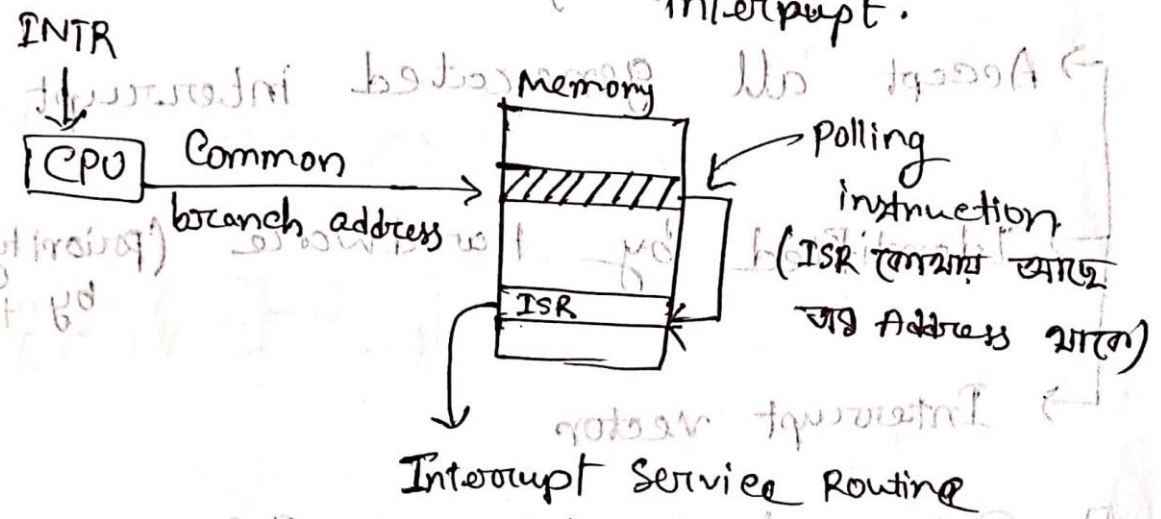 interrupt.
INTR
Memory
CPU
Common
branch address
Polling
instruction
(ISR কোথায় আছে
তার Address থাকে)
ISR
Interrupt Service Routine